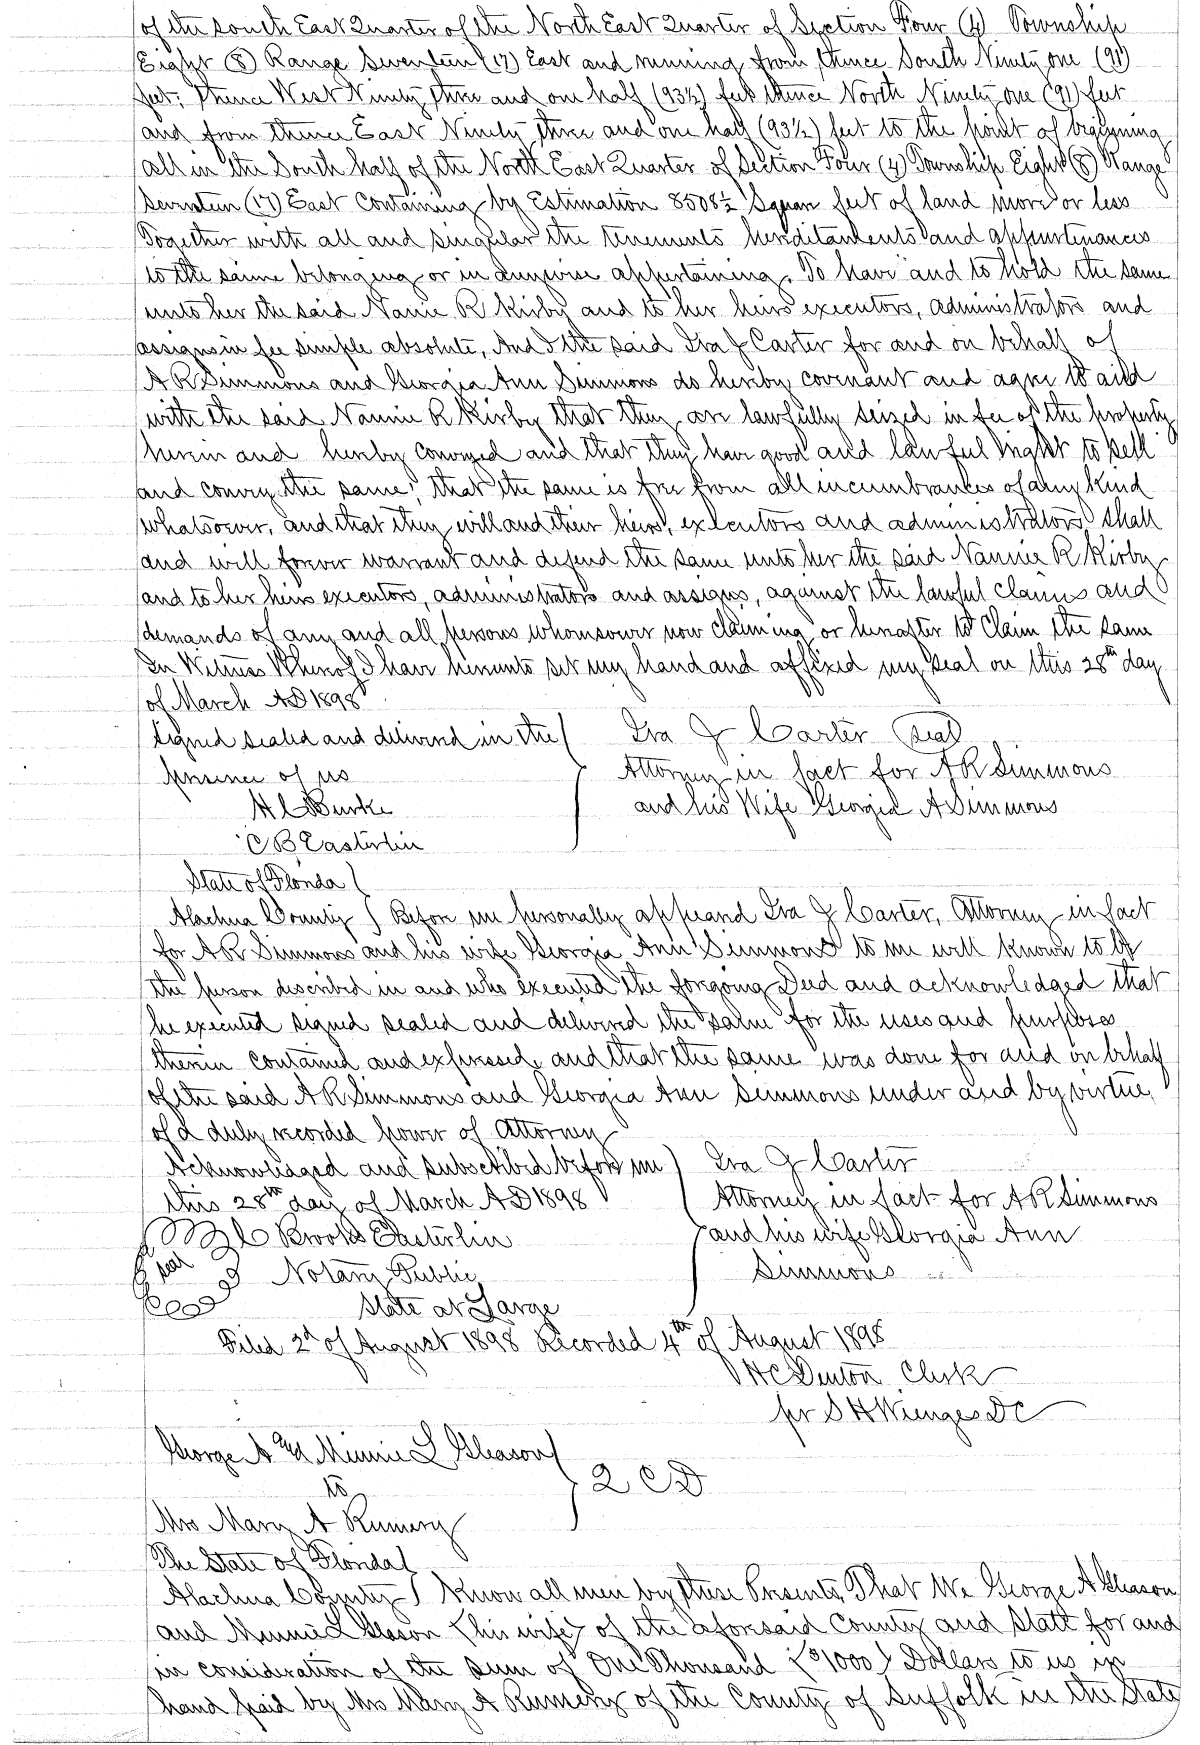 of the South East Quarter of the North East Quarter of Section Four (4) Township
Eight (8) Range Seventeen (17) East and running from thence South Ninety one (91)
feet; thence West Ninety three and one half (93½) feet thence North Ninety one (91) feet
and from thence East Ninety three and one half (93½) feet to the point of beginning
all in the South half of the North East Quarter of Section Four (4) Township Eight (8) Range
Seventeen (17) East Containing by Estimation 8508½ Square feet of land more or less
Together with all and singular the tenements hereditaments and appurtenances
to the same belonging or in anywise appertaining. To have and to hold the same
unto her the said Nannie R Kirby and to her heirs executors, administrators and
assigns in fee simple absolute, And I the said Ira J Carter for and on behalf of
A R Simmons and Georgia Ann Simmons do hereby covenant and agree to and
with the said Nannie R Kirby that they are lawfully seized in fee of the property
herein and hereby conveyed and that they have good and lawful right to sell
and convey the same; that the same is free from all incumbrances of any kind
whatsoever, and that they will and their heirs, executors and administrators shall
and will forever warrant and defend the same unto her the said Nannie R Kirby
and to her heirs executors, administrators and assigns, against the lawful claims and
demands of any and all persons whomsoever now claiming or hereafter to claim the same
In Witness Whereof I have hereunto set my hand and affixed my seal on this 28th day
of March AD 1898
Signed sealed and delivered in the Ira J Carter (seal)
presence of us Attorney in fact for A R Simmons
H L Burke and his Wife Georgia A Simmons
C B Easterlin
State of Florida
Alachua County Before me personally appeared Ira J Carter, Attorney in fact
for A R Simmons and his wife Georgia Ann Simmons to me well known to be
the person described in and who executed the forgoing Deed and acknowledged that
he executed signed sealed and delivered the same for the uses and purposes
therein contained and expressed, and that the same was done for and on behalf
of the said A R Simmons and Georgia Ann Simmons under and by virtue
of a duly recorded power of Attorney
Acknowledged and subscribed before me Ira J Carter
this 28th day of March AD 1898 Attorney in fact for A R Simmons
C Brooks Easterlin and his wife Georgia Ann
seal Notary Public Simmons
State at Large
Filed 2d of August 1898 Recorded 4th of August 1898
H C Denton Clerk
per S H Wienges DC
George A and Minnie L Gleason
to 2 C D
Mrs Mary A Rumery
The State of Florida
Alachua County Know all men by these Presents, That We George A Gleason
and Minnie L Gleason (his wife) of the aforesaid County and State for and
in consideration of the sum of One Thousand ($1000) Dollars to us in
hand paid by Mrs Mary A Rumery of the County of Suffolk in the State